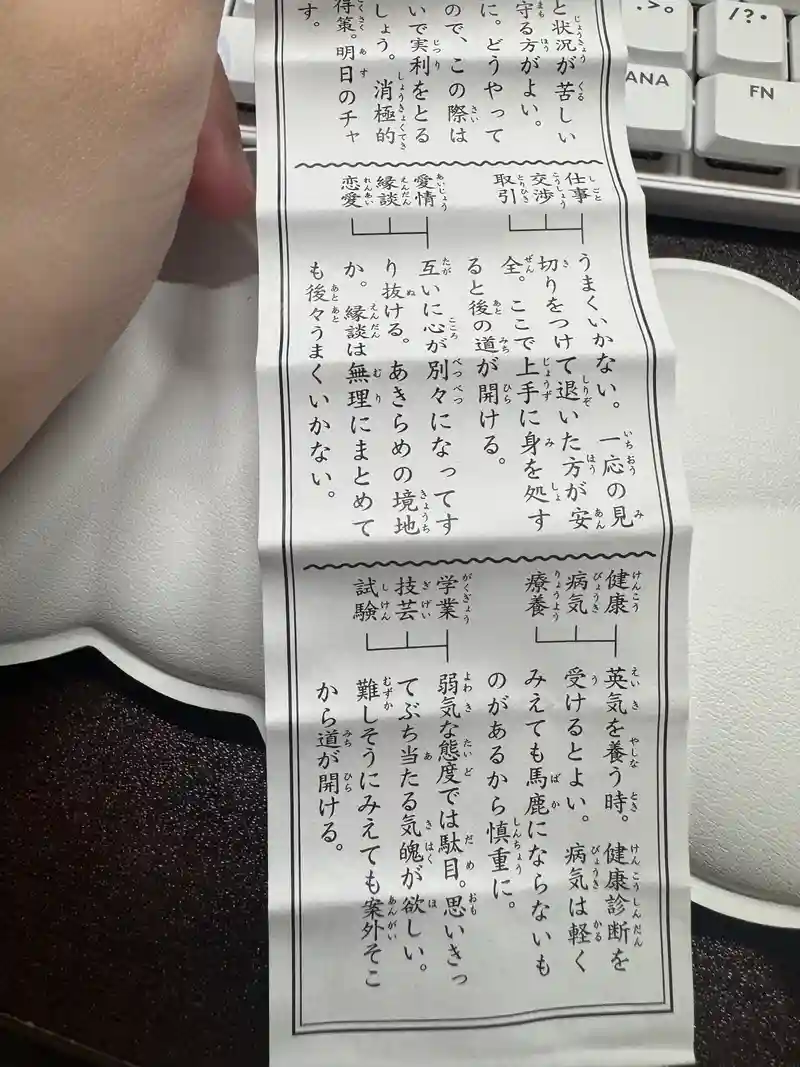 と状況が苦しい
守る方がよい。
に。どうやって
ので、この際は
いで実利をとる
しょう。消極的
得策。明日のチャ
す。
仕事
交渉
取引
うまくいかない。一応の見
切りをつけて退いた方が安
全。ここで上手に身を処す
ると後の道が開ける。
愛情
縁談
恋愛
互いに心が別々になってす
り抜ける。あきらめの境地
か。縁談は無理にまとめて
も後々うまくいかない。
健康
病気
療養
英気を養う時。健康診断を
受けるとよい。病気は軽く
みえても馬鹿にならないも
のがあるから慎重に。
学業
技芸
試験
弱気な態度では駄目。思いきっ
てぶち当たる気魄が欲しい。
難しそうにみえても案外そこ
から道が開ける。
ANA
FN
/?・
.>。